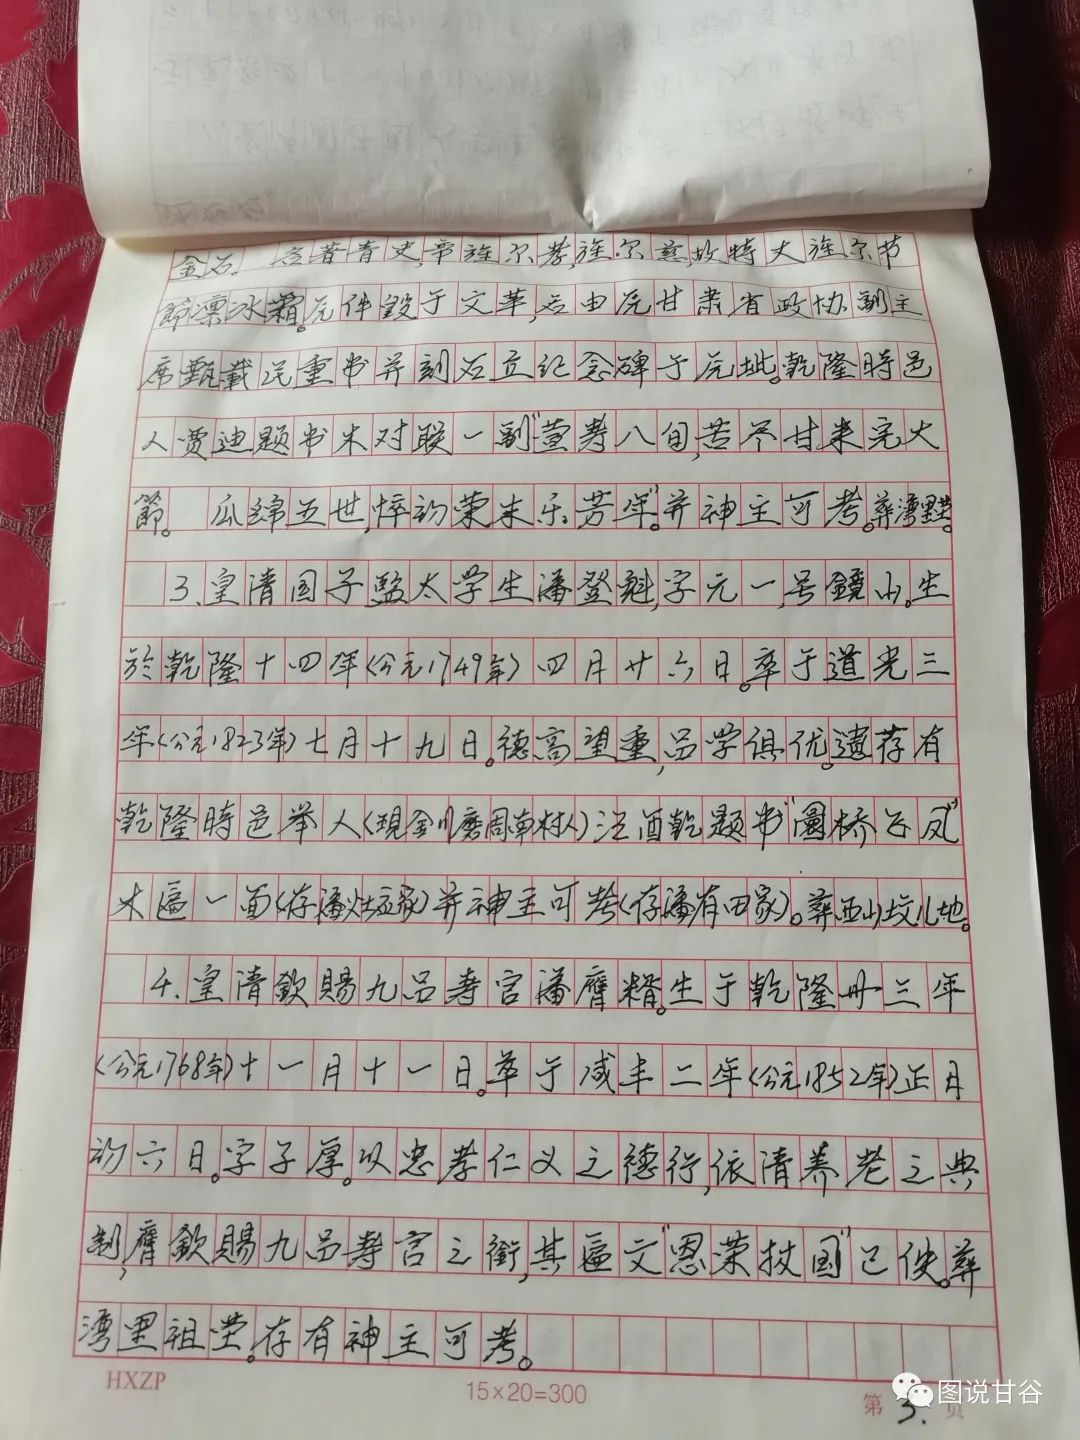 金石。 彦著青史,帝旌尔孝,旌尔慈,故特大旌尔节
節凛冰霜。原件毀于文革,后由原甘肃省政协副主
席甄載民重书并刻石立纪念碑于原址。乾隆時邑
人贾迪题书木对联一副“萱寿八旬,苦尽甘来完大
節。 瓜綿五世,悴初荣末乐芳年”。并神主可考。葬湾里茔。
3、皇清国子監太学生潘登魁,字元一,号鏡山。生
於乾隆十四年(公元1749年)四月廿六日。卒于道光三
年(公元1823年)七月十九日。德高望重,品学俱优。遗存有
乾隆時邑举人(現金川磨周南村人)汪酉乾题书“圜桥公凤”
木匾一面(存潘灶孟家)并神主可考(存潘有田家)。葬西山坟儿地。
4.皇清欽賜九品寿官潘膺糈。生于乾隆卅三年
(公元1768年)十一月十一日。卒于咸丰二年(公元1852年)正月
初六日。字子厚。以忠孝仁义之德行,依清养老之典
制,膺欽賜九品寿官之銜,其匾文“恩荣杖国”已佚。葬
湾里祖茔。存有神主可考。
HXZP
15×20=300
第3.页
图说甘谷